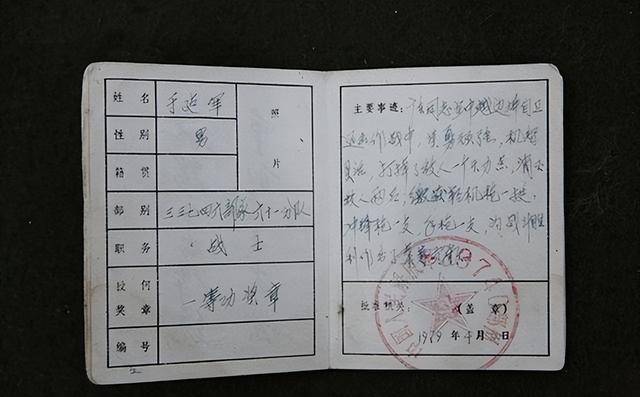 姓名 于延军 照片
性别 男
籍贯
部别 三三七四六部队六十一分队
职务 战士
授何奖章 一等功奖章
编号
2
主要事迹：该同志在中越边境自卫
还击作战中，英勇顽强，机智
灵活，打掉了敌人一个火力点，消灭
敌人两名，缴获轻机枪一挺，
冲锋枪一支，手枪一支，为战斗胜
利作出了
批准机关： （盖章）
1979年 月 日